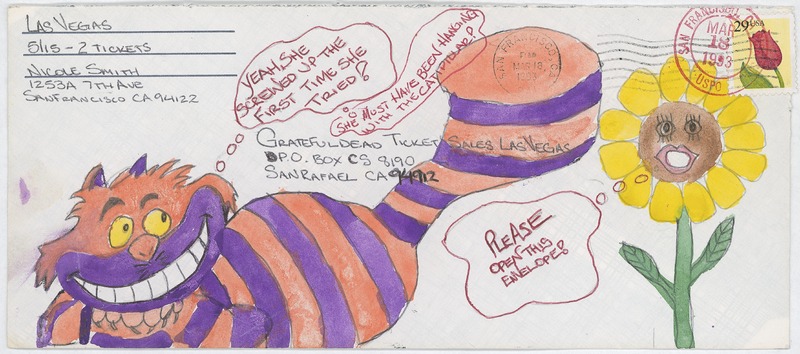 LAS VEGAS
5/15 - 2 TICKETS
NICOLE SMITH
1253A 7TH AVE
SAN FRANCISCO CA 94122
YEAH, SHE
SCREWED UP THE
FIRST TIME SHE
TRIED!
SHE MUST HAVE BEEN HANGING
WITH THE CATIPILLAR!
SAN FRANCISCO, CA
MAR 18,
1993
SAN FRANCISCO
MAR
18
1993
USPO
29 USA
GRATEFUL DEAD TICKET SALES LAS VEGAS
P.O. BOX CS 8190
SAN RAFAEL CA 94912
PLEASE
OPEN THIS
ENVELOPE!